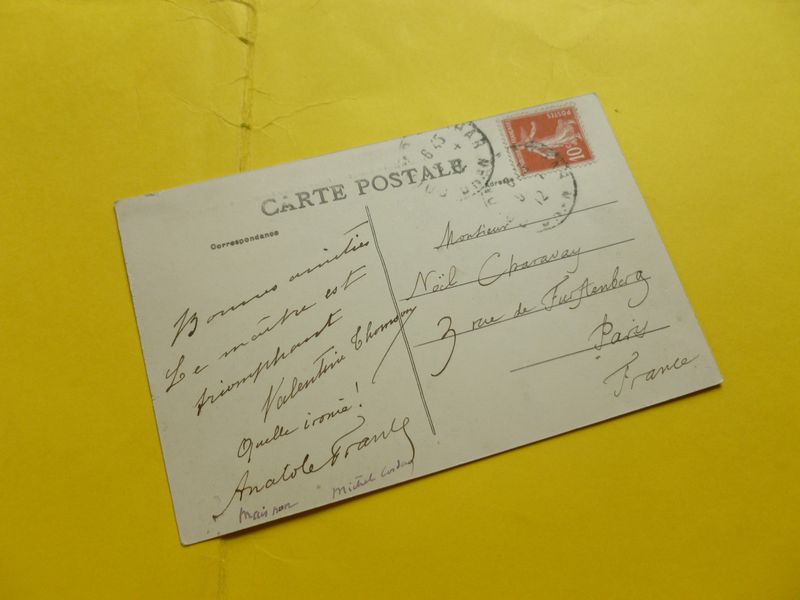 CARTE POSTALE
Correspondance
Adresse
POSTES
10
Bonnes amitiés
Le maître est
triomphant
Valentine Thomson
Quelle ironie!
Anatole France
Mais non
Michel Corday
Monsieur
Noël Charavay
3 rue de Furstenberg
Paris
France